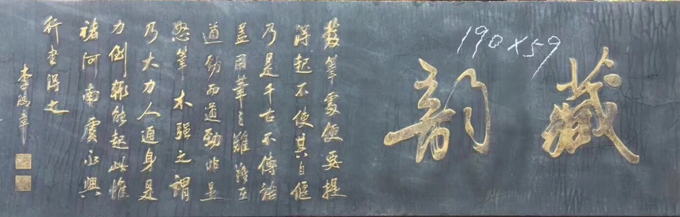 藏韵
190×59
發筆處便要提
得起不使其自偃
乃是千古不傳語
盖用筆之難難在
遒勁而遒勁非是
怒筆木强之謂
乃大力人通身是
力倒輒能起此惟
褚河南虞永興
行書得之
李鴻章